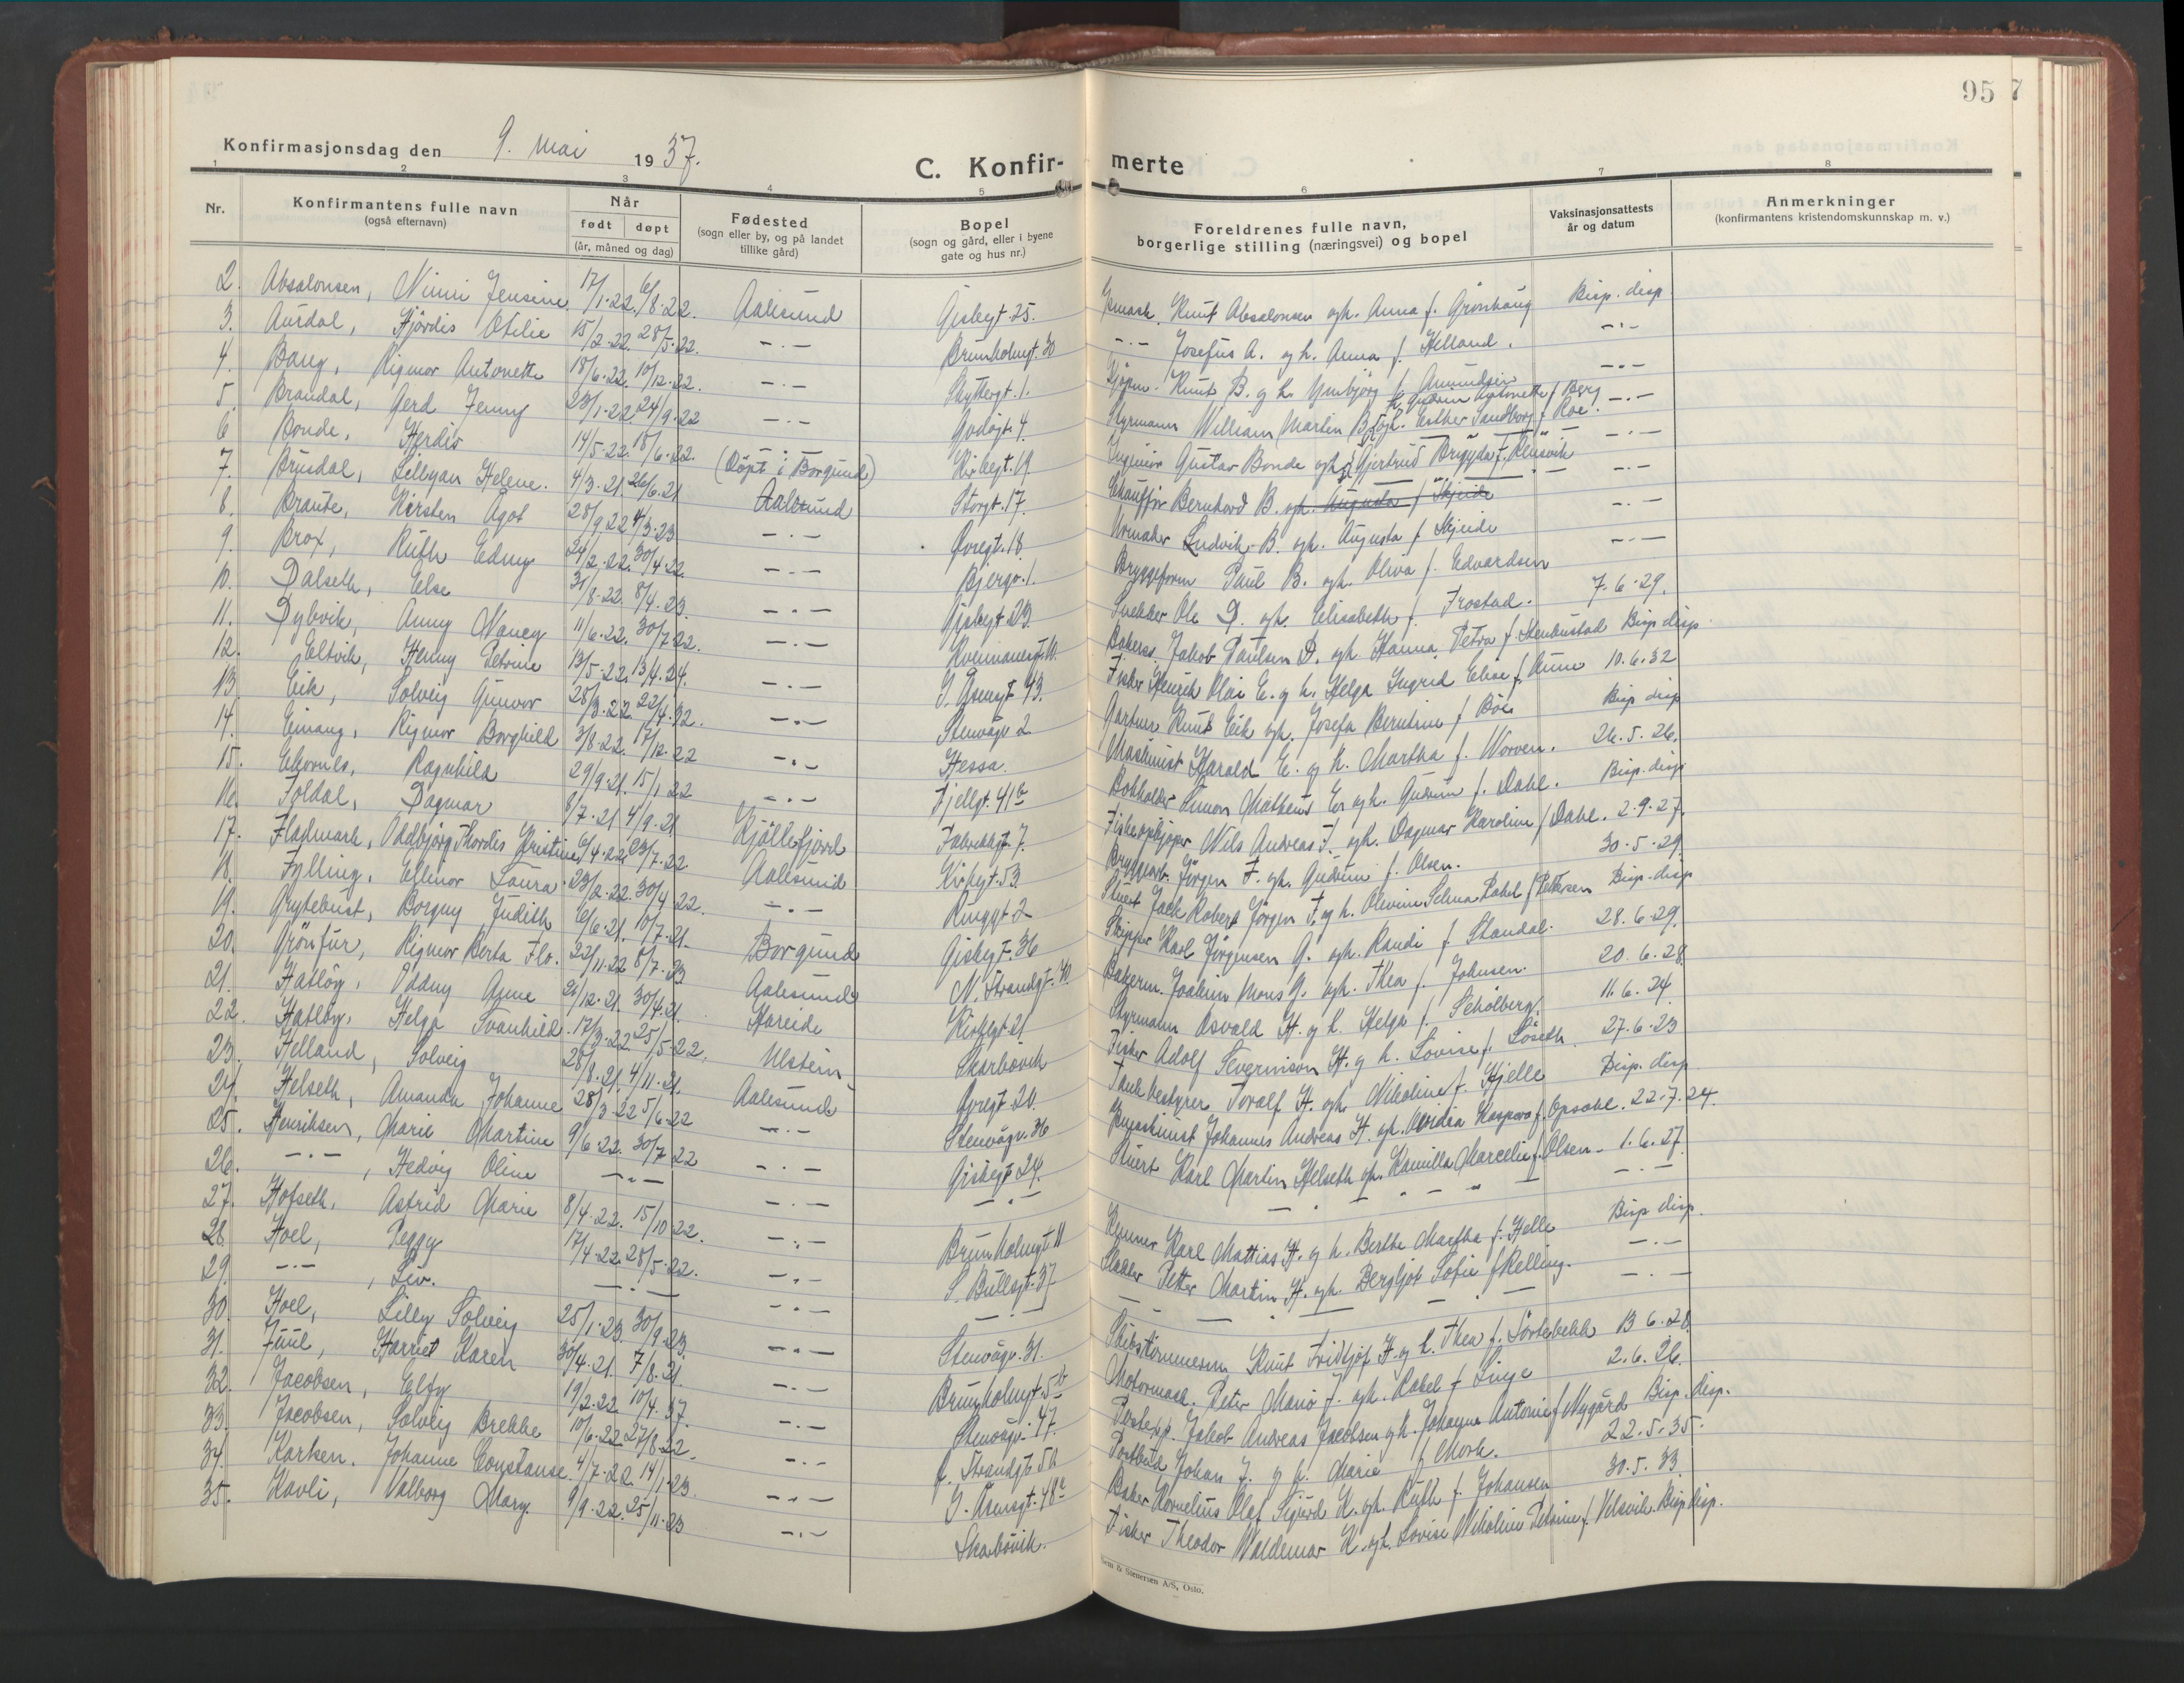 95 7
Konfirmasjonsdag den 9. mai 1937.
C. Konfir- merte
1 2 3 4 5 6 7 8
Nr. Konfirmantens fulle navn (også efternavn) Når født døpt (år, måned og dag) Fødested (sogn eller by, og på landet tillike gård) Bopel (sogn og gård, eller i byene gate og hus nr.) Foreldrenes fulle navn, borgerlige stilling (næringsvei) og bopel Vaksinasjonsattests år og datum Anmerkninger (konfirmantens kristendomskunnskap m. v.)
2. Absalonsen, Nimi Jensine 17/1.22. 6/8.22. Aalesund Gisbegt. 25. Knut Absalonsen og h. Anna f. Grønhaug Bisp. disp.
3. Aurdal, Hjördis Otilie 15/2.22. 28/5.22. -.- Brunholmgt. 30 -.- Josefus A. og h. Anna f. Helland. -.-
4. Bang, Rigmor Antonette 18/6.22. 10/12.22. -.- Skyttergt. 1. Kjøpm. Knut B. og h. Ymbjørg f. Amundsen -.-
h. Gudrun Antonette f. Berg
5. Brandal, Gerd Jenny 23/1.22. 24/9.22 -.- Godøgt. 4. Styrmann William Martin B. og h. Esther Sandborg f. Roe. -.-
6 Bonde, Herdis 14/5.22. 18/6.22. -.- (Døpt i Borgund) Kirkegt. 19 Ingeniør Gustav Bonde og h. Gjertrud Brigyda f. Klusvik -.-
7. Brusdal, Lillyan Helene. 4/3.21. 26/6.21 Aalesund Storgt. 17. Chauffør Bernhard B. og h. Augusta f. Skjeide -.-
8. Braute, Kirsten Agot 28/9.22 4/3.23 -.- Øvregt. 18. Urmaker Ludvik B. og h. Augusta f. Skjeide -.-
9. Brox, Ruth Edny 24/2.22. 30/4.22. -.- Bjergv. 1. Bryggeform Paul B. og h. Oliva f. Edvardsen -.-
10. Dalseth, Else 31/8.22. 8/4.23. -.- Gisbegt. 23. Snekker Ole D. og h. Elisabeth f. Frostad. 7.6.29.
11. Dybvik, Anny Nancy 11/6.22. 30/7.22. -.- Kvennaneset 10. Jakob Paulsen D. og h. Hanna Petra f. Stenbustad Bisp disp
12. Eltvik, Henny Petrine 13/5.22. 13/4.24. -.- I. Åsengt 43. Fisker Henrik Olai E. og h. Helga Ingrid Elise f. Aune 10.6.32
13 Eik, Solveig Gunvor 28/3.22. 22/4.32. -.- Stenvågv. 2 Gartner Knut Eik og h. Josefa Berntine f. Böe Bisp disp
14. Einang, Rigmor Borghild 3/8.22. 17/12.22 -.- Hessa. Maskinist Harald E. og h. Martha f. Worren. 26.5.26.
15. Ekornes, Ragnhild 29/9.21. 15/1.22 -.- Fjellgt. 41b Bokholder Simon Matheus E. og h. Gudrun f. Dahl. Bisp. disp
16. Foldal, Dagmar 8/7.21 4/9.21 Kjøllefjord Fabrikkgt. 7. Fiskeopkjøper Nils Andreas F. og h. Dagmar Karoline f. Dahl. 2.9.27.
17. Fladmark, Oddbjørg Thordis Kristine 6/4.22 23/7.22 Aalesund Kirkegt. 53. Bryggearb. Jörgen F. og h. Gudrun f. Olsen. 30.5.29.
18. Fylling, Ellinor Laura. 23/2.22. 30/4.22. -.- Ringgt. 2 Stuert Jack Robert Jörgen F. og h. Olivine Selma Rakel f. Pettersen Bisp. disp
19. Grytebust, Borgny Judith 6/6.21. 10/7.21. Borgund Gisbegt. 36 Skipper Karl Jörgensen G. og h. Randi f. Standal. 28.6.29.
20. Grönfur, Rigmor Berta Flo. 22/11.22 8/7.23 Aalesund N. Strandgt. 40. Bakerm. Joakim Mons G. og h. Thea f. Johnsen. 20.6.28.
21. Hatløy, Oddny Anne 21/12.21. 30/4.21. Hareide Kirkegt. 21 Styrmann Osvald H. og h. Helga f. Schölberg. 11.6.24
22. Hatløy, Helga Svanhild. 17/3.22. 25/5.22. Ulstein Skarbövik Fisker Adolf Severinson H. og h. Lovise f. Löseth. 27.6.23
23. Helland, Solveig 28/8.21. 4/11.21. Aalesund Øvregt. 20. Tankbestyrer Toralf H. og h. Nikoline f. Hjelle Bisp. disp
24. Helseth, Amanda Johanne 28/3.22 5/6.22 -.- Stenvågv. 36 Johannes Andreas H. og h. Ovidia Kaspara f. Opsahl. 22.7.24.
25. Henriksen, Marie Martine 9/6.22. 30/7.22 -.- Gisbegt. 24. Stuert Karl Martin Helseth og h. Kamilla Marcelie f. Olsen. 1.6.27.
26. -.-, Hedvig Oline -.- -.- -.- -.- -.-
27. Hofseth, Astrid Marie 8/4.22. 15/10.22. -.- Brunholmgt. 11 Karl Mattias H. og h. Berthe Martha f. Helle Bisp disp.
28. Hoel, Peggy 17/4.22. 28/5.22. -.- S. Bullsgt. 37 Petter Martin H. og h. Bergljot Sofie f. Kelling. -.-
29. -.-, Liv. -.- -.- -.- -.- -.-
30. Hoel, Lilly Solveig 25/1.23. 30/9.23. -.- Stenvågv. 31. Skibstömmerm Knut Fridtjof H. og h. Thea f. Sortebekk 13.6.28.
31. Juul, Harriet Karen 30/4.21. 7/8.21. -.- Brunholmgt. 5b Motormask. Peter Mario J. og h. Rakel f. Linge 2.6.26.
32. Jacobsen, Elfy 19/2.22. 10/4.37. -.- Stenvågv. 47. Jakob Andreas Jacobsen og h. Johanne Antonie f. Nygård Bisp. disp.
33. Jacobsen, Solveig Brekke 10/6.22. 27/8.22. -.- Strandgt. 50 Postbud Johan J. og h. Marie f. Mork. 22.5.35.
34. Karlsen. Johanne Constanse. 4/7.22. 14/1.23. -.- I. Åsengt. 48c Baker Kornelius Olaf Sigurd K. og h. Ruth f. Johansen 30.5.33.
35. Kavli, Valborg Mary. 9/9.22. 25/11.23 -.- Skarbövik. Fisker Theodor Waldemar K. og h. Lovise Nikoline Petrine f. Velsvik. Bisp disp.
& Stenersen A/S, Oslo.